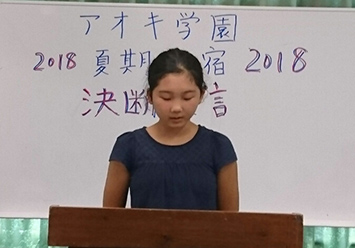 アオキ学園
2018 夏期 宿 2018
決断 言